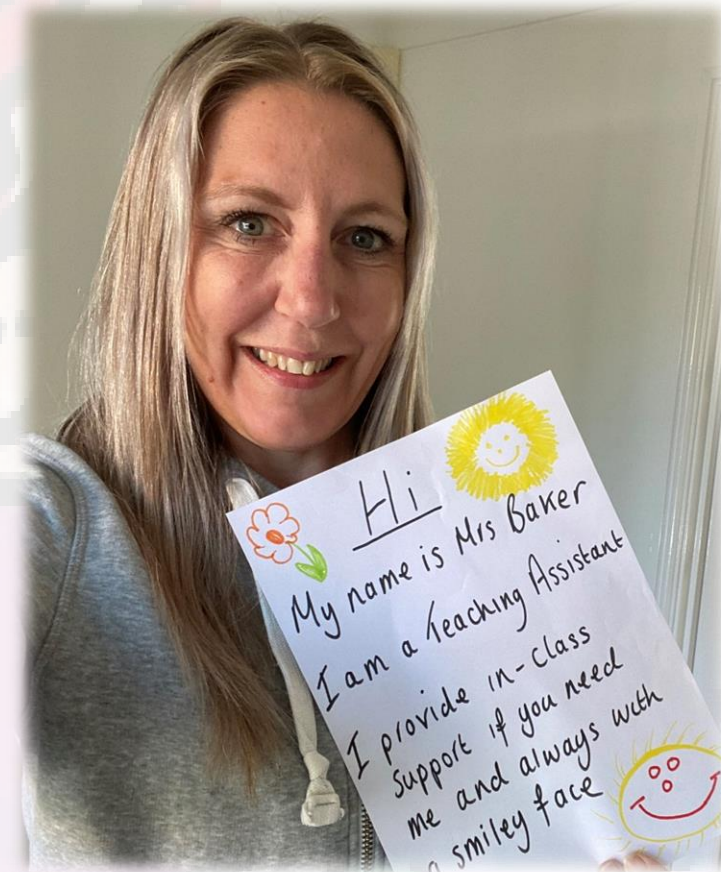 Hi
My name is Mrs Baker
I am a Teaching Assistant
I provide in-class
support if you need
me and always with
a smiley face